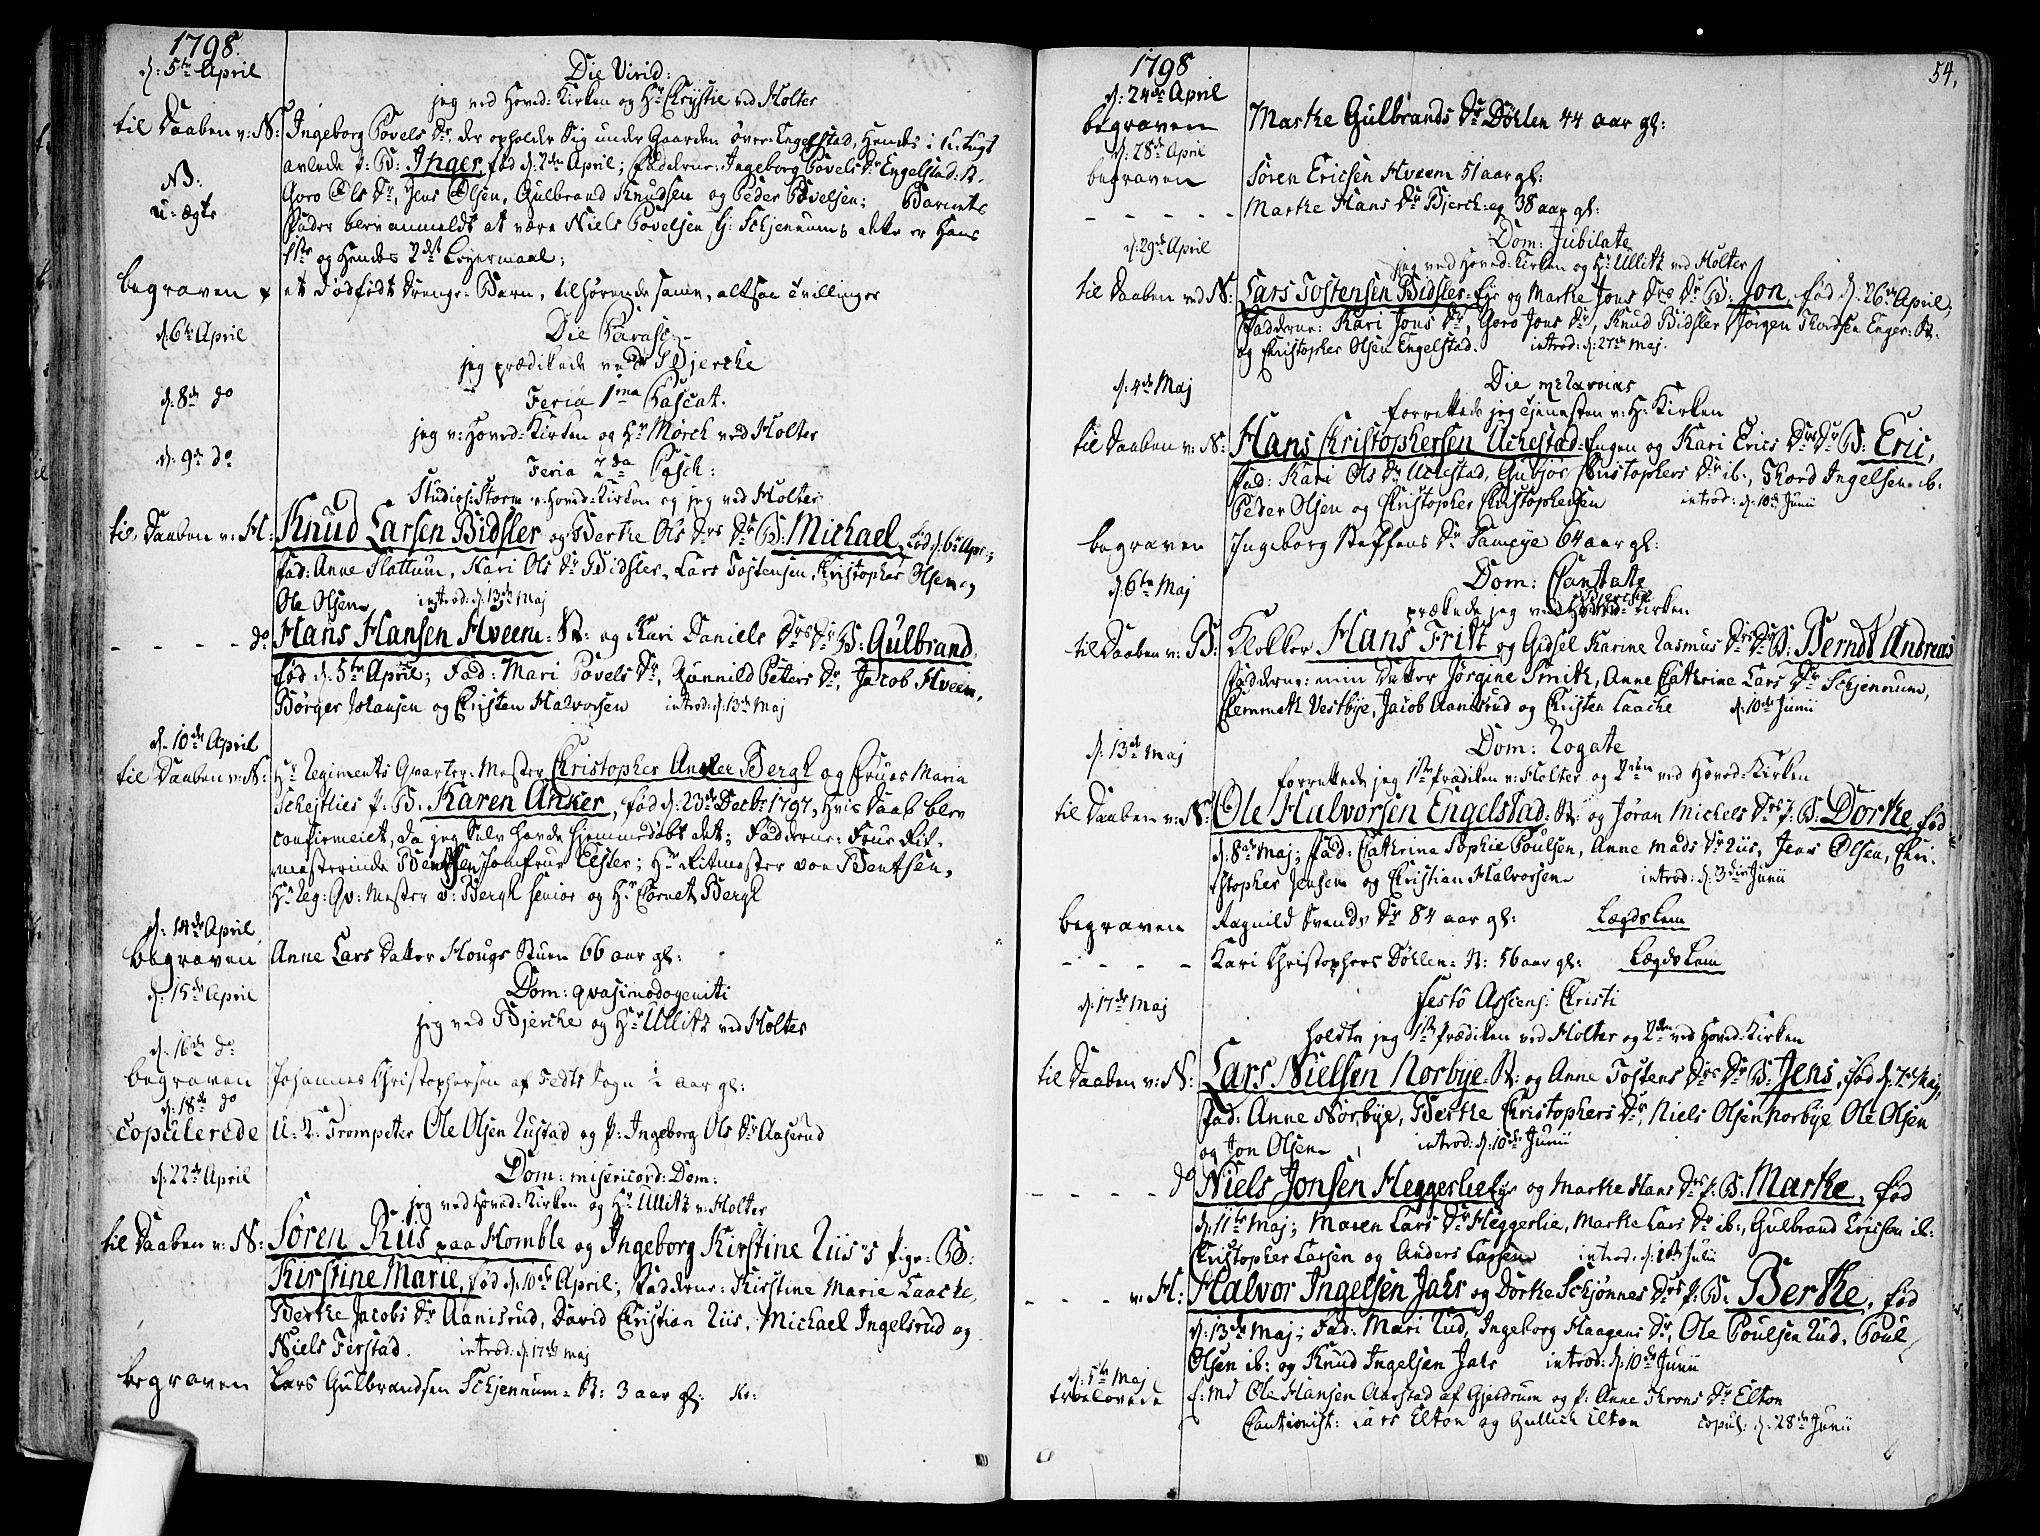 1798.
d: 5te April
Die Virid:
jeg ved Hoved-Kirken og Hr Chrystie ved Holter
til Daaben v: N: Ingeborg Povels Dr, der opholder Sig under Gaarden över-Engelstad, Hendes i U:tugt
avlede p: B: Inger, fød d: 2den April; Fadderne: Ingeborg Povels Dr Engelstad: N.
NB: Goro Ols Dr, Jens Olsen, Gulbrand Knudsen og Peder Povelsen; Barnets
u-ægte Fader blev anmeldt at være Niels Povelsen G: Schjennum; dette er Hans
1ste og Hendes 2det Leyermaal;
begraven et dødfødt Drenge-Barn, tilhörende samme, altsaa Tvillinger
d: 6te April
Die Parasc:
jeg prædikede ved Bjercke
d: 8de do
Feria 1ma Pascat.
jeg v: Hoved-Kirken og Hr Mörch ved Holter
d: 9de do
Feria 2da Pasch:
Studios: Storm v: Hoved-Kirken og jeg ved Holter
til Daaben v: H: Knud Larsen Bidsler og Berthe Ols Drs Dr B: Michael, fød d: 6te Apr:;
fad: Anne Slattum, Kari Ols Dr Bidsler, Lars Tostensen, Christopher Olsen og
Ole Olsen introd: d: 13de Maj
- - - - do Hans Hansen Hveem: N: og Kari Daniels Drs Dr B: Gulbrand,
fød d: 5te April; Fad: Mari Povels Dr, Rønnild Peters Dr, Jacob Hveem,
Börger Johansen og Christen Halvorsen introd: d: 13de Maj
d: 10de April
til Daaben v: N: Hr Regiments Qvarter-Mester Christopher Ancher Bergh og Frues Maria
Schejtlies p: B: Karen Anker, fød d: 23de Decbr 1797, hvis Daab blev
confirmeret, da jeg Selv havde hjemmedøbt det; Fadderne: Frue Rit-
mesterinde Bentsen, Jomfrue Elster; Hr Ritmester von Bentsen,
Hr Reg: Qv: Mester v: Bergh senior og Hr Cornet Bergh
d: 14de April
begraven Anne Lars Datter Hougs Stuen 66 aar gl:
d: 15de April
Dom: qvasimodogeniti
jeg ved Bjercke og Hr Ullitz ved Holter
d: 16de do
begraven Johannes Christophersen af Fedts Sogn ½ aar gl:
d: 18de do
copulerede U: K: Trompeter Ole Olsen Rustad og p: Ingeborg Ols Dr Aaserud
d: 22de April
Dom: misericord: Dom:
jeg ved Hoved-Kirken og Hr Ullitz v: Holter
til Daaben v: N: Søren Riis paa Homble og Ingeborg Kirstine Riis's pige-B:
Kirstine Marie, fød d: 10de April; Fadderne: Kirstine Marie Laache,
Berthe Jacobs Dr Aanisrud, David Christian Riis, Michael Ingelsrud og
Niels Ferstad. introd: d: 17de Maj
begraven Lars Gulbrandsen Schjennum: N: 3 aar gl:
1798
54,
d: 24de April
begraven Marthe Gulbrands Dr Döhlen 44 aar gl:
d: 28de April
begraven Søren Ericsen Hveem 51 aar gl:
- - - - - Marthe Hans Dr Bjerch-eg 38 aar gl:
d: 29de April
Dom: Jubilate
jeg ved Hoved-Kirken og Hr Ullitz ved Holter
til Daaben ved N: Lars Tostensen Bidsler-eje og Marthe Jons Drs Dr B: Jon, fød d: 26de April,
Fadderne: Kari Jons Dr, Goro Jons Dr, Knud Bidsler, Jörgen Thordsen Enger: N.
og Christopher Olsen Engelstad. introd: d: 27de Maj.
d: 4de Maj
Die mcLaroias
forrettede jeg Tjenesten v: H: Kirken
til Daaben v: N: Hans Christophersen Ackestad-Engen og Kari Erics Drs Dr B: Eric,
fad: Kari Ols Dr Ackestad, Gubjør Christophers Dr ib:, Thord Ingelsen ib:
Peder Olsen og Christopher Christophersen introd: d: 10de Junii
begraven Ingeborg Steffens Dr Tamøye 64 aar gl:
d: 6te Maj
Dom: Cantate
Bjercke
prækede jeg ved Hoved-Kirken
til Daaben v: B: Klokker Hans Fridt og Gidsel Karine Rasmus Drs Dr B: Berndt Andreas
Fadderne: min Datter Jörgine Smith, Anne Cathrine Lars Dr Schjennum,
Clemmeth Vestbye, Jacob Aanisrud og Christen Laache d: 10de Junii
d: 13de Maj
Dom: Rogate
forrettede jeg 1ste Prædiken v: Holter og 2den ved Hoved-Kirken
til Daaben v: N: Ole Halvorsen Engelstad: N: og Jøran Michels Drs p: B: Dorthe, fød
d: 8de Maj; fad: Cathrina Sophie Poulsen, Anne Mads Dr Riis, Jens Olsen, Chri-
stopher Jensen og Christian Halvorsen introd: d: 3die Junii
begraven Ragnild Svends Dr 84 aar gl: Lægds Lem
- - - - Kari Christophers Döhlen: N: 56 aar gl: Lægds Lem
d: 17de Maj
Festo Ascens: Christi
holdte jeg 1ste Prædiken ved Holter og 2den ved Hoved-Kirken
til Daaben v: N: Lars Nielsen Norbye: N: og Anne Tostens Drs Dr B: Jens, fød d: 7de Maj,
fad: Anne Norbye, Berthe Christophers Dr, Niels Olsen Norbye, Ole Olsen
og Jon Olsen introd: d: 10de Junii
- - - - do Niels Jonsen Heggerlie-Eje og Marthe Hans Drs p: B: Marthe, fød
d: 11te Maj; Maren Lars Dr Heggerlie, Marthe Lars Dr ib:, Gulbrand Ericsen ib:
Christopher Larsen og Anders Larsen introd: d: 1ste Julii
- - - - v: H: Halvor Ingelsen Jahr og Dorthe Schjønnes Drs p: B: Berthe, fød
d: 13de Maj; Fad: Mari Rud, Ingeborg Haagens Dr, Ole Poulsen Rud, Poul
Olsen ib: og Knud Ingelsen Jahr introd: d: 10de Junii
d: 5te Maj
trolovede E: Md Ole Hansen Aarstad af Gjerdrum og p: Anne Throns Dr Elton
Cautionist: Lars Elton og Gullich Elton copul: d: 28de Junii